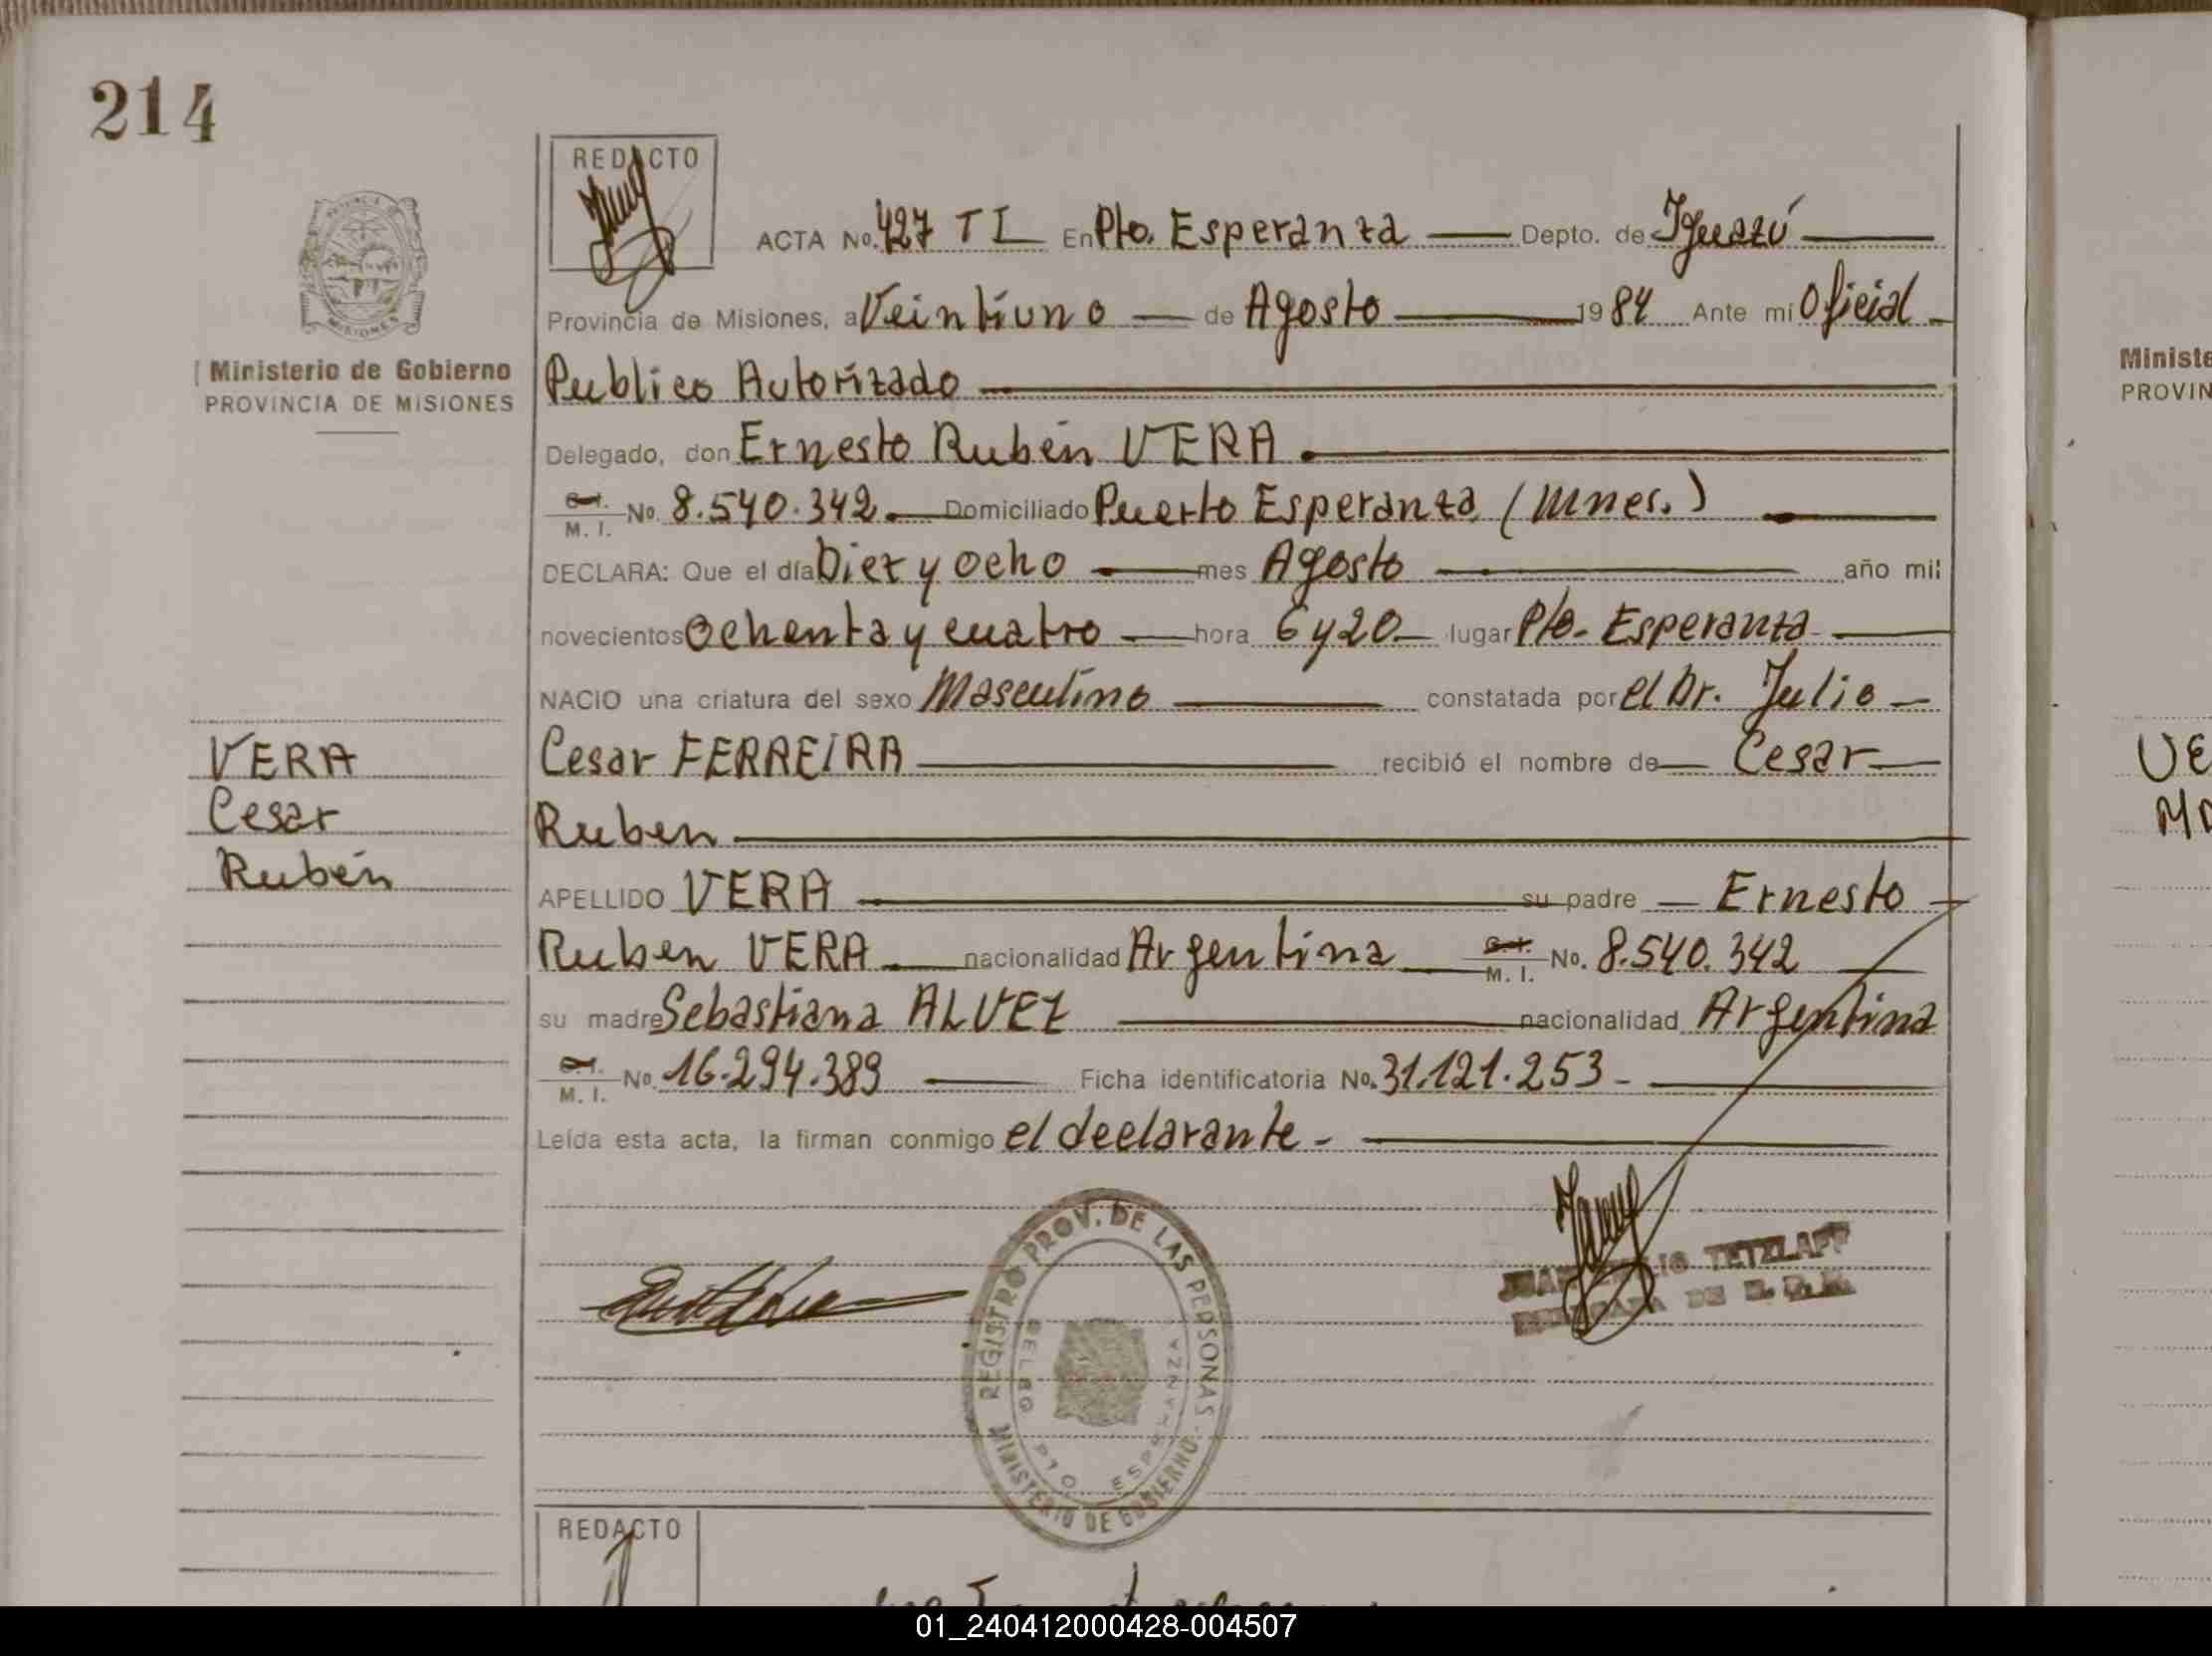 214
REDACTO
ACTA No. 427 T I En Pto. Esperanza Depto. de Iguazú
Provincia de Misiones, a Veintiuno de Agosto 1984 Ante mí Oficial
Ministerio de Gobierno
PROVINCIA DE MISIONES
Publico Autorizado
Delegado, don Ernesto Rubén VERA
C.I. M. I. No. 8.540.342. Domiciliado Puerto Esperanza (Mnes.)
DECLARA: Que el día Diez y ocho mes Agosto año mil
novecientos Ochenta y cuatro hora 6 y 20 lugar Pto. Esperanza
NACIO una criatura del sexo Masculino constatada por el Dr. Julio
Cesar FERREIRA recibió el nombre de Cesar
Ruben
VERA
Cesar
Rubén
APELLIDO VERA su padre Ernesto
Ruben VERA nacionalidad Argentina C.I. M. I. No. 8.540.342
su madre Sebastiana ALVEZ nacionalidad Argentina
C.I. M. I. No. 16.294.389 Ficha identificatoria No. 31.121.253
Leída esta acta, la firman conmigo el declarante
REGISTRO PROV. DE LAS PERSONAS
MINISTERIO DE GOBIERNO
DELEG PTO ESPERANZA
TETZLAFF
REDACTO
Ministe
PROVIN
VE
01_240412000428-004507